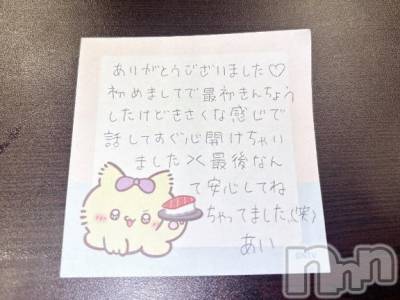 ありがとうございました♡
初めましてで最初きんちょう
したけどきさくな感じで
話してすぐ心開けちゃい
ました><最後なん
て安心してね
ちゃってました(笑)
あい
nnn